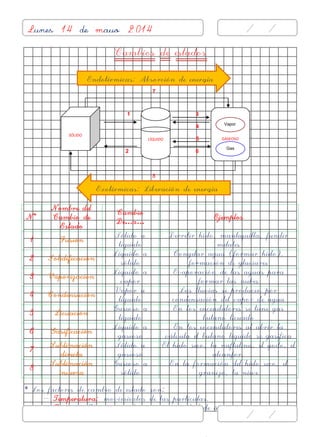 Lunes 14 de mayo 2014
/ /
Cambios de estados
Endotérmicas: Absorción de energía
7
1
3
4
Vapor
SÓLIDO
LÍQUIDO
5
GASEOSO
2
6
Gas
8
Exotérmicas: Liberación de energía
N°
Nombre del Cambio de Estado
Cambia De.......a
Ejemplos
1 Fusión Sólido a líquido Derretir hielo, mantequilla, fundir metales
2 Solidificación Líquido a sólido Congelar agua (formar hielo), formación de glaciares
3 Vaporización Líquido a vapor Evaporación de las aguas para formar las nubes
4 Condensación Vapor a líquido Las lluvias se producen por condensación del vapor de agua
5 Licuación Gaseoso a líquido En los encendedores se tiene gas butano licuado
6 Gasificación Líquido a gaseoso En los encendedores al abrir la válvula el butano líquido se gasifica
7 Sublimación directa Sólido a gaseoso El hielo seco, la naftalina, el yodo, el alcanfor
8 Sublimación inversa Gaseoso a sólido En la formación del hielo seco, el granizo, la nieve
* Los factores de cambio de estado son:
Temperatura: movimientos de las partículas.
/ /